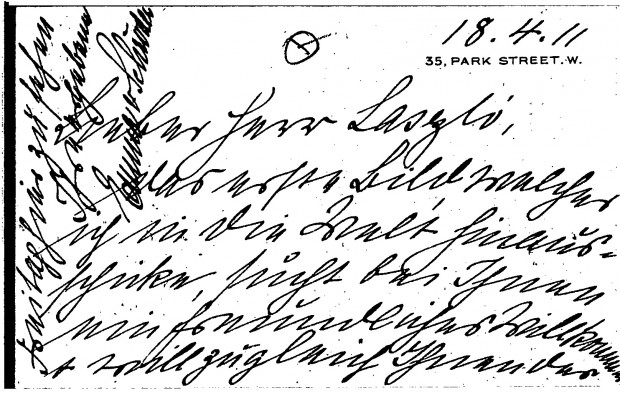 18.4.11
35, PARK STREET. W.
Lieber Herr Laszló,
das erste Bild, welches
ich in die Welt hinaus-
schicke, sucht bei Ihnen
ein freundliches Willkommen
& will zugleich Ihnen den